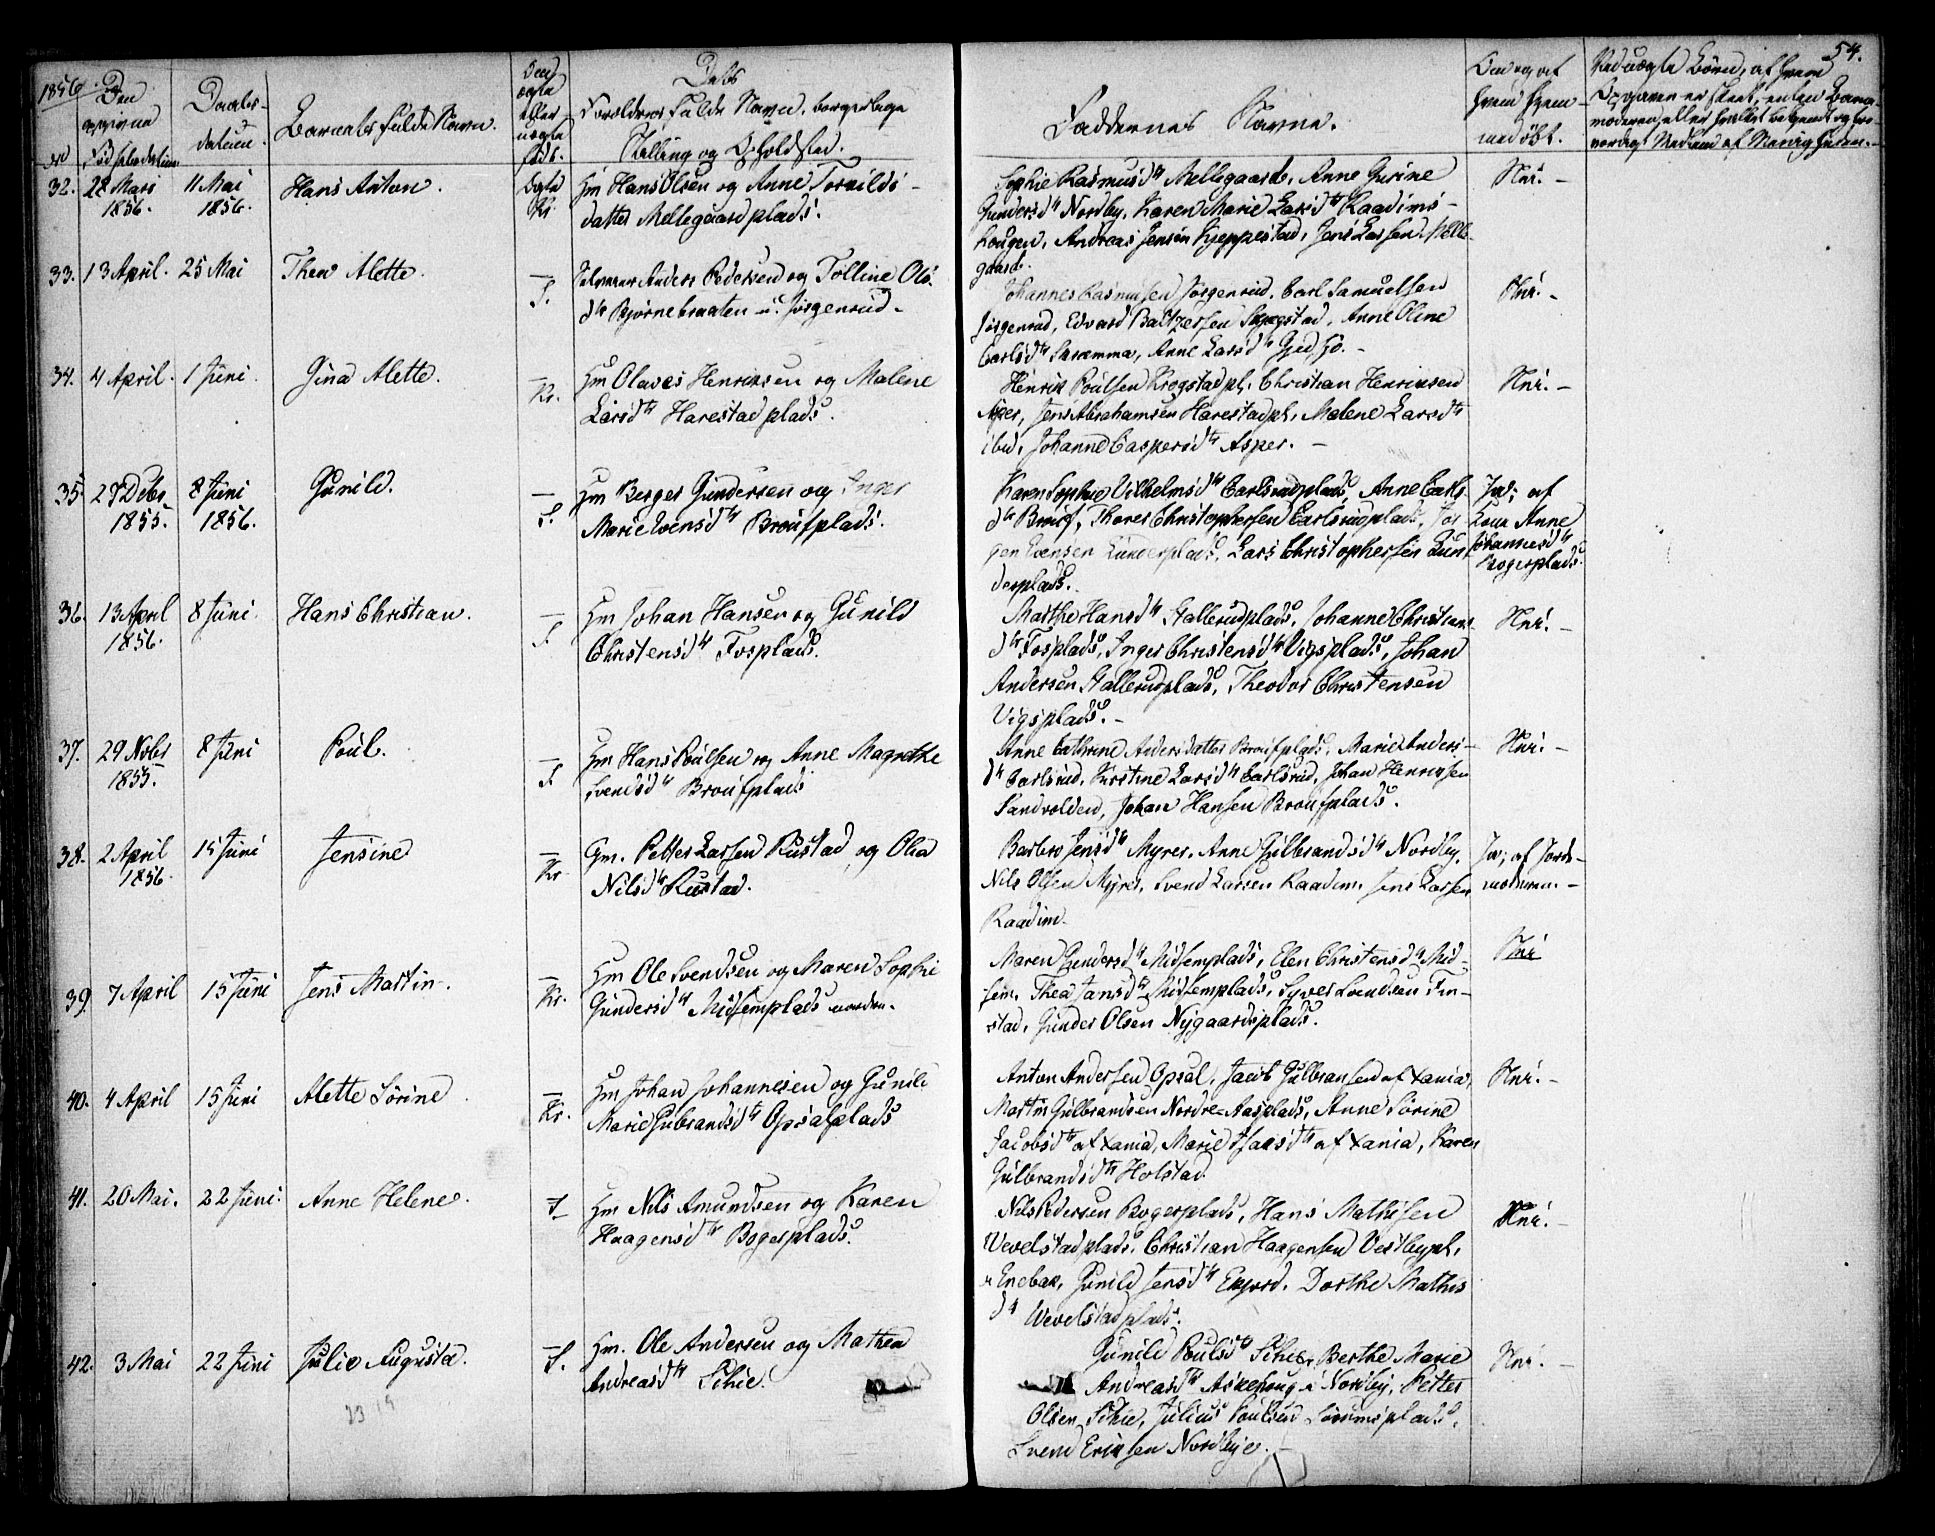 1856.
54.
No
Den opgivne Fødselsdatum
Daabs-datum.
Barnets fulde Navn.
Om ægte eller uægte født.
Dets Forældres fulde Navn, borgerlige Stilling og Opholdsted.
Faddernes Navne.
Om og af hvem hjemmedøbt.
32. 28 Mars 1856. 11 Mai 1856. Hans Anton. Ægte Kr.
Gm Hans Olsen og Anne Torvilds-
datter Mellegaardplads.
Sophie Rasmusdtr Mellegaard, Anne Gurine
Gundersdtr Nordby, Karen Marie Larsdtr Raadims-
hougen, Andreas Jensen Kjeppestad, Jens Larsen Melle-
gaard.
Hnr. -
33. 13 April. 25 Mai Thea Alette. - S.
Selveier Anders Pedersen og Tolline Ols
dtr Bjørnebraaten u. Jørgenrud.
Johannes Rasmusen Jørgenrud, Carl Samuelsen
Jørgenrud, Edvard Baltzersen Skjegstad, Anne Oline
Carlsdtr Skramma, Anne Larsdtr Gjedsjø. -
Hnr. -
34. 4 April. 1 Juni. Gina Alette. - Kr.
Hm Olaves Henriksen og Malene
Larsdtr Harestadplads.
Henrik Poulsen Krogstadpl, Christian Henriksen
Asper, Jens Abrahamsen Harestadpl, Malene Larsdtr
ibid, Johanne Caspersdtr Asper. -
Hnr. -
35. 27 Debr 1855. 8 Juni 1856. Gunild. - S.
Hm Berger Gundersen og Inger
Marie Evensdtr Brousplads.
Karen Sophie Vilhelmsdtr Carlsrudplads, Anne Carls
dtr Brous, Thorer Christophersen Carlsrudplads, Jør
gen Evensen Lunderplads, Lars Christophersen Lun
derplads.
Ja; af
Kone Anne
Johannesdtr
Bogerplads.
36. 13 April 1856. 8 Juni. Hans Christian. - S.
Hm Johan Hansen og Gunild
Christensdtr Fosplads.
Marthe Hansdtr Hallerudplads, Johanne Christians
dtr Fosplads, Inger Christensdtr Vigsplads, Johan
Andersen Hallerudplads, Theodor Christensen
Vigsplads. -
Hnr. -
37. 29 Nober 1855. 8 Juni Poul. - S.
Hm Hans Poulsen og Anne Magrethe
Svendsdtr Brousplads
Anne Cathrine Andersdatter Brousplads, Marie Anders-
dtr Carlsrud, Kirstine Larsdtr Carlsrud, Johan Henriksen
Sandvolden, Johan Hansen Brousplads.
Hnr. -
38. 2 April 1856. 15 Juni Jensine - Kr.
Gm. Petter Larsen Rustad og Olia
Nilsdtr Rustad.
Barbro Jensdtr Myrer, Anne Gulbrandsdtr Nordby,
Nils Olsen Myrer, Svend Larsen Raadim, Jens Larsen
Raadim.
Ja; af Jord-
moderen. -
39. 7 April 15 Juni Jens Martin. - Kr.
Hm Ole Svendsen og Maren Sophie
Gundersdtr Midsemplads norden.
Maren Gundersdtr Midsemplads, Elen Christensdtr Mid-
sem, Thea Jansdtr Midsemplads, Syver Svendsen Fin-
stad, Gunder Olsen Nygaardsplads.
Hnr
40. 4 April 15 Juni Alette Sørine. - Kr.
Hm Johan Johannesen og Gunild
Marie Gulbrandsdtr Opsalplads
Anton Andersen Opsal, Jacob Gulbransen af Xania,
Martin Gulbrandsen Nordre-Aasplads, Anne Sørine
Jacobsdtr af Xania, Marie Isaksdtr af Xania, Karen
Gulbrandsdtr Holstad.
Hnr. -
41. 20 Mai. 22 Juni. Anne Helene. - S.
Hm Nils Amundsen og Karen
Haagensdtr Bogerplads.
Nils Pedersen Bogerplads, Hans Mathisen
Vevelstadplads, Christian Haagensen Vestbypl,
i Enebak, Gunild Jensdtr Enjord, Dorthe Mathis
dtr Vevelstadplads.
Hnr. -
42. 3 Mai 22 Juni Julie Augusta. - S.
Hm. Ole Andersen og Mathea
Andreasdtr Schie.
Gunild Poulsdtr Schie, Berthe Marie
Andreasdtr Askehoug i Nordby, Petter
Olsen Schie, Julius Poulsen Sørumsplads,
Svend Eriksen Nordbye. -
Hnr. -